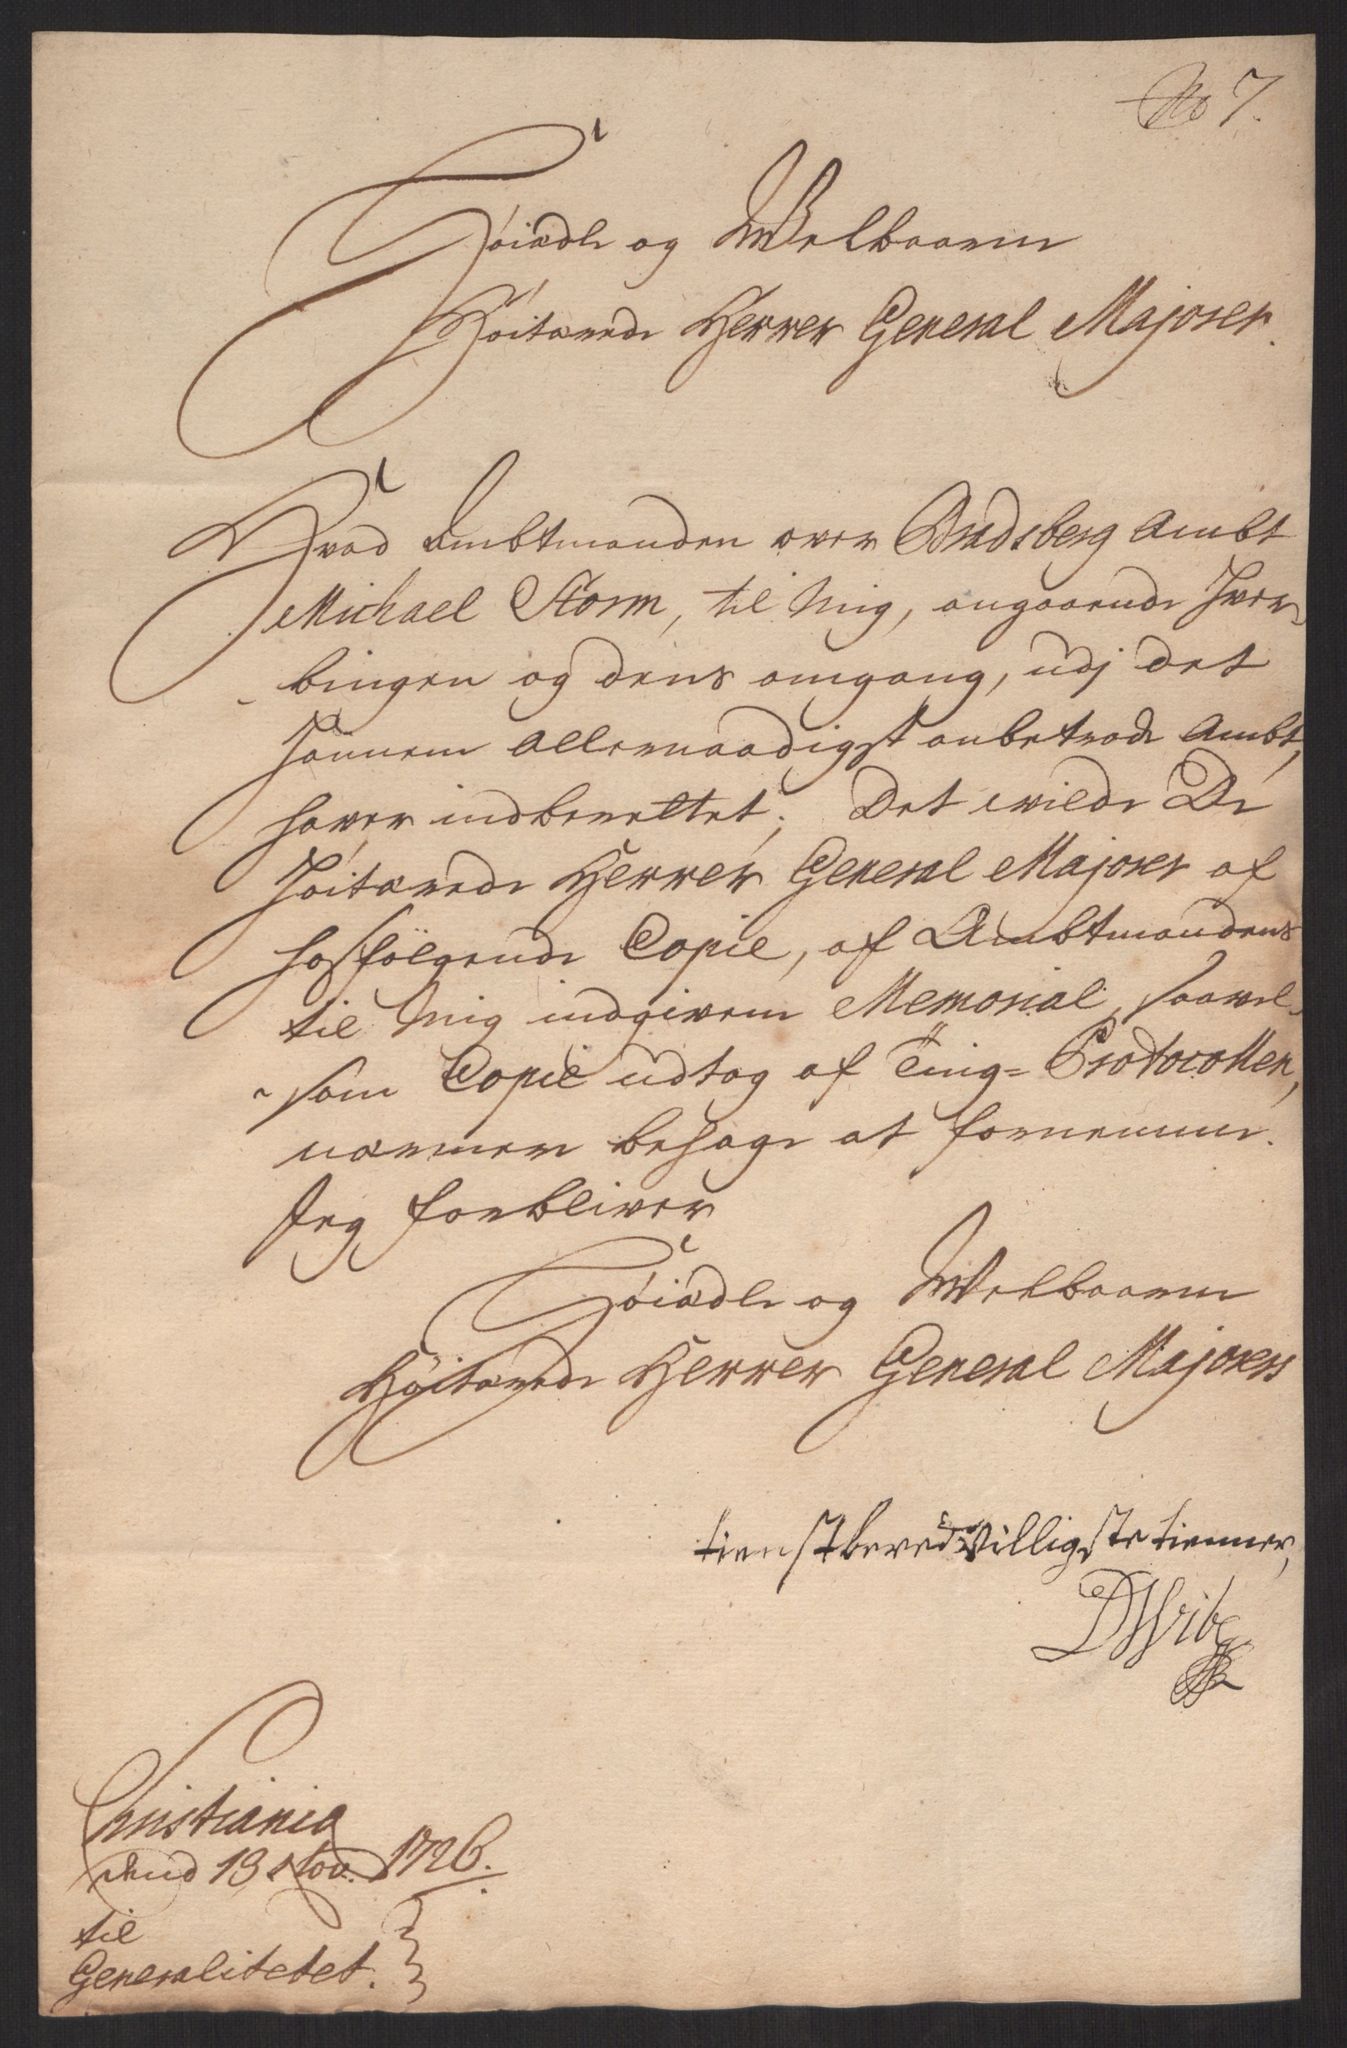 No 7.
Høiædle og Welbaarne
Høitærede Herrer General Majorer.
Hvad Ambtmanden over Bradsberg Ambt
Michael Storm, til Mig, angaaende Hver-
bingen og dens omgang, udj det
Hannem allernaadigst anbetroede Ambt,
haver indberettet; Det wilde De
Høitærede Herrer General Majorer af
hosfølgende Copie, af Ambtmandens
til Mig indgivene Memorial, saavel-
som Copie udtog af Ting-Protocollen,
nærmere behage at fornemme.
Jeg forbliver
Høiædle og Welbaarne
Høitærede Herrer General Majorers
tienstberedvilligste tienner,
DWibe
Christiania
dend 13 Nov. 1726.
til
Generalitetet.